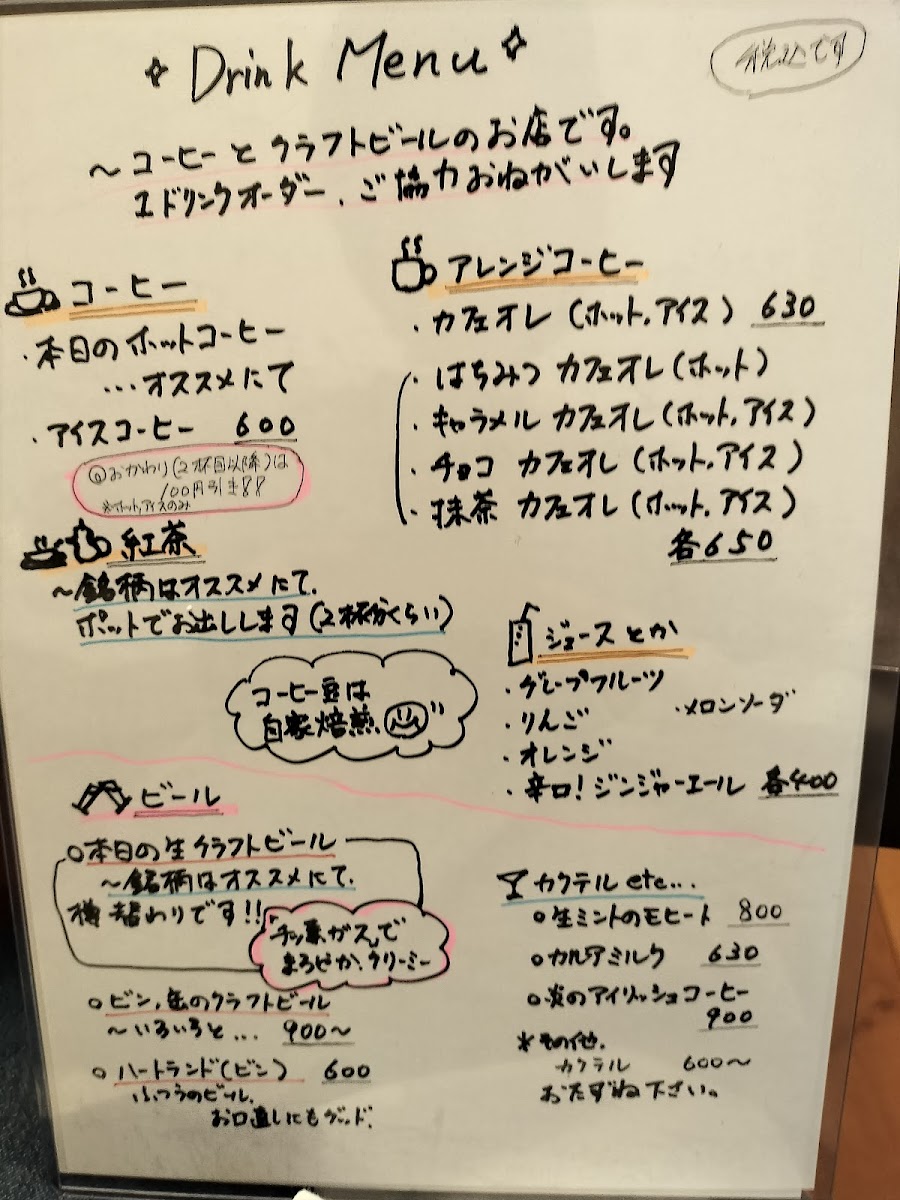 Drink Menu
税込です
～コーヒーとクラフトビールのお店です。
1ドリンクオーダー、ご協力おねがいします
コーヒー
・本日のホットコーヒー
…オススメにて
・アイスコーヒー 600
◎おかわり(2杯目以降)は
100円引き!!
※ホット,アイスのみ
紅茶
～銘柄はオススメにて、
ポットでお出しします(2杯分くらい)
コーヒー豆は
自家焙煎
アレンジコーヒー
・カフェオレ(ホット,アイス) 630
・はちみつ カフェオレ(ホット)
・キャラメル カフェオレ(ホット,アイス)
・チョコ カフェオレ(ホット,アイス)
・抹茶 カフェオレ(ホット,アイス)
各650
ジュースとか
・グレープフルーツ
・りんご
・オレンジ
・メロンソーダ
・辛口!ジンジャーエール 各400
ビール
○本日の生クラフトビール
～銘柄はオススメにて、
樽替わりです!!
チッ素ガスで
まろやか、クリーミー
○ビン,缶のクラフトビール
～いろいろと… 900～
○ハートランド(ビン) 600
ふつうのビール、
お口直しにもグッド、
カクテルetc...
○生ミントのモヒート 800
○カルアミルク 630
○炎のアイリッシュコーヒー
900
※その他、
カクテル 600～
おたずね下さい。